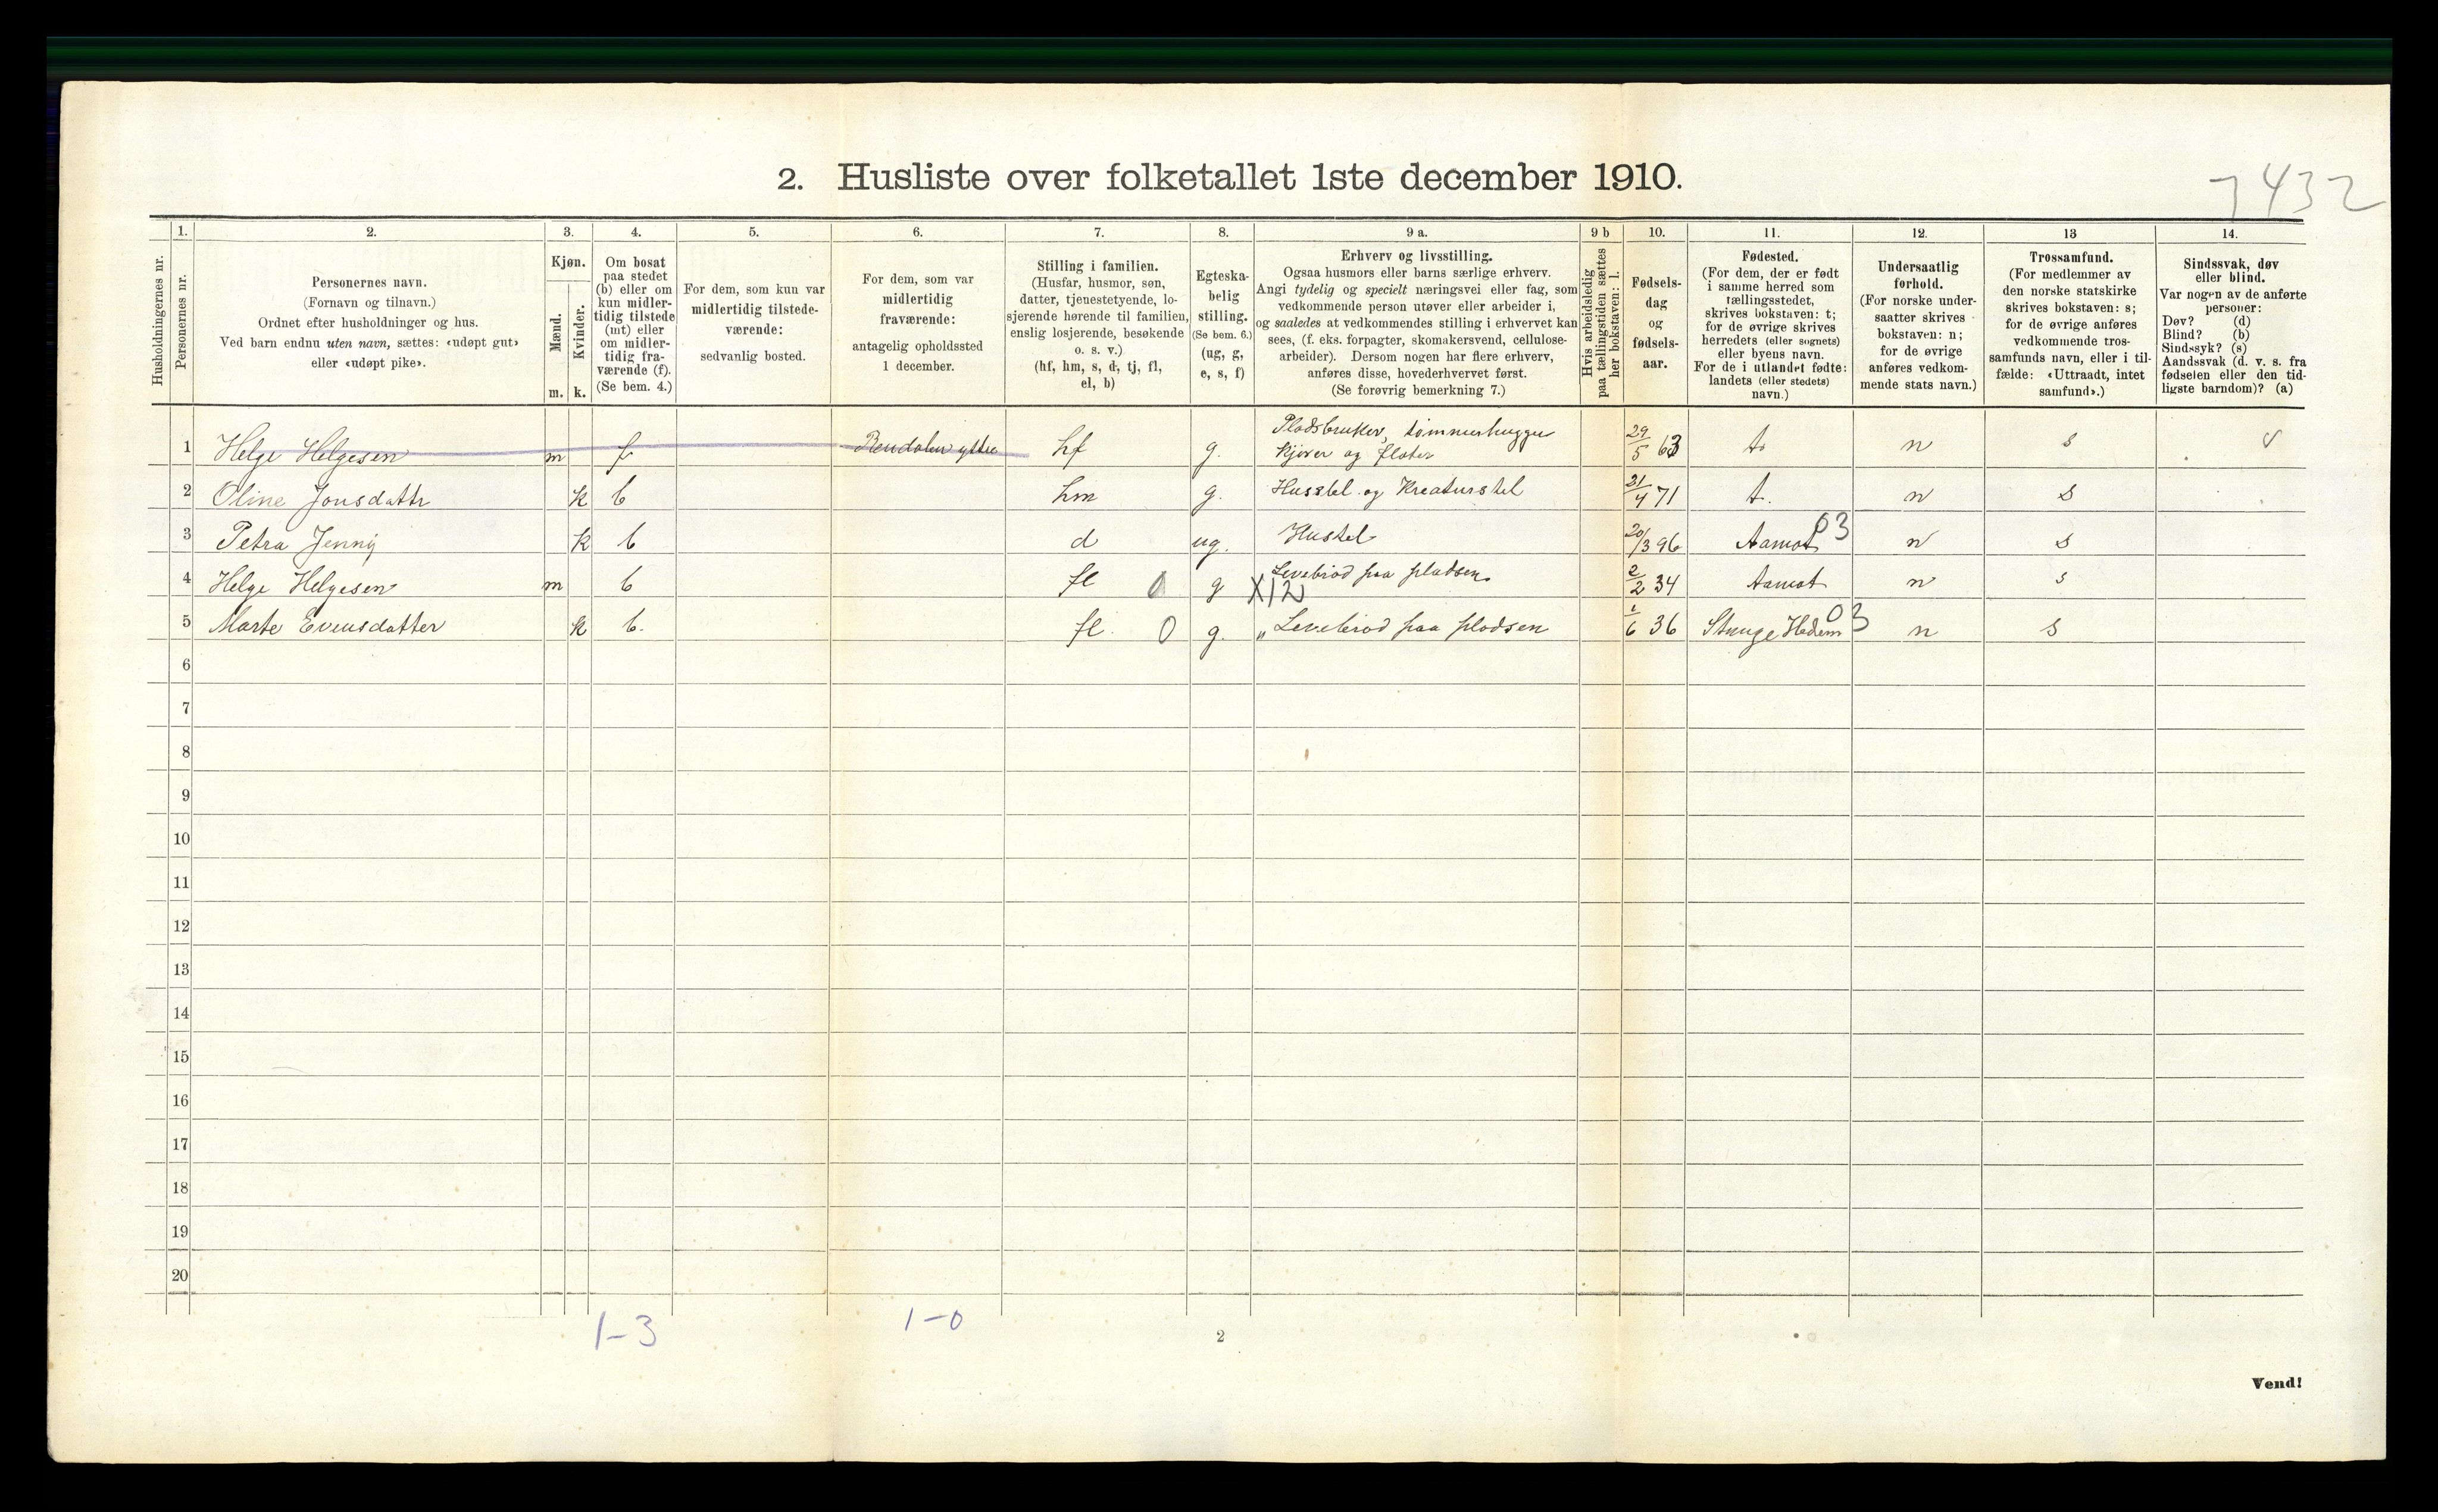 2. Husliste over folketallet 1ste december 1910.
7432
Husholdningernes nr.
1.
Personernes nr.
2.
Personernes navn.
(Fornavn og tilnavn.)
Ordnet efter husholdninger og hus.
Ved barn endnu uten navn, sættes: «udøpt gut»
eller «udøpt pike».
3.
Kjøn.
Mænd.
Kvinder.
m. k.
4.
Om bosat
paa stedet
(b) eller om
kun midler-
tidig tilstede
(mt) eller
om midler-
tidig fra-
værende (f).
(Se bem. 4.)
5.
For dem, som kun var
midlertidig tilstede-
værende:
sedvanlig bosted.
6.
For dem, som var
midlertidig
fraværende:
antagelig opholdssted
1 december.
7.
Stilling i familien.
(Husfar, husmor, søn,
datter, tjenestetyende, lo-
sjerende hørende til familien,
enslig losjerende, besøkende
o. s. v.)
(hf, hm, s, d, tj, fl,
el, b)
8.
Egteska-
belig
stilling.
(Se bem. 6.)
(ug, g,
e, s, f)
9 a.
Erhverv og livsstilling.
Ogsaa husmors eller barns særlige erhverv.
Angi tydelig og specielt næringsvei eller fag, som
vedkommende person utøver eller arbeider i,
og saaledes at vedkommendes stilling i erhvervet kan
sees, (f. eks. forpagter, skomakersvend, cellulose-
arbeider). Dersom nogen har flere erhverv,
anføres disse, hovederhvervet først.
(Se forøvrig bemerkning 7.)
9 b
Hvis arbeidsledig
paa tællingstiden sættes
her bokstaven: l.
10.
Fødsels-
dag
og
fødsels-
aar.
11.
Fødested.
(For dem, der er født
i samme herred som
tællingsstedet,
skrives bokstaven: t;
for de øvrige skrives
herredets (eller sognets)
eller byens navn.
For de i utlandet fødte:
landets (eller stedets)
navn.)
12.
Undersaatlig
forhold.
(For norske under-
saatter skrives
bokstaven: n;
for de øvrige
anføres vedkom-
mende stats navn.)
13
Trossamfund.
(For medlemmer av
den norske statskirke
skrives bokstaven: s;
for de øvrige anføres
vedkommende tros-
samfunds navn, eller i til-
fælde: «Uttraadt, intet
samfund».)
14.
Sindssvak, døv
eller blind.
Var nogen av de anførte
personer:
Døv? (d)
Blind? (b)
Sindssyk? (s)
Aandssvak (d. v. s. fra
fødselen eller den tid-
ligste barndom)? (a)
1 Helge Helgesen m f Rendalen yttre hf g. Pladsbruker, tømmerhugger
kjører og fløter 29/5 63 t. n s
2 Oline Jonsdattr k b hm g. Husstel og Kreaturstel 21/4 71 t. n s
3 Petra Jenny k b d ug. Hustel 20/3 96 Aamot 03 n s
4 Helge Helgesen m b fl 0 g X12 Levebrød paa pladsen 2/2 34 Aamot n s
5 Marte Evensdatter k b. fl. 0 g. „ Levebrød paa pladsen 1/6 36 Stange Hedem 03 n s
6
7
8
9
10
11
12
13
14
15
16
17
18
19
20
1-3 1-0
2
Vend!